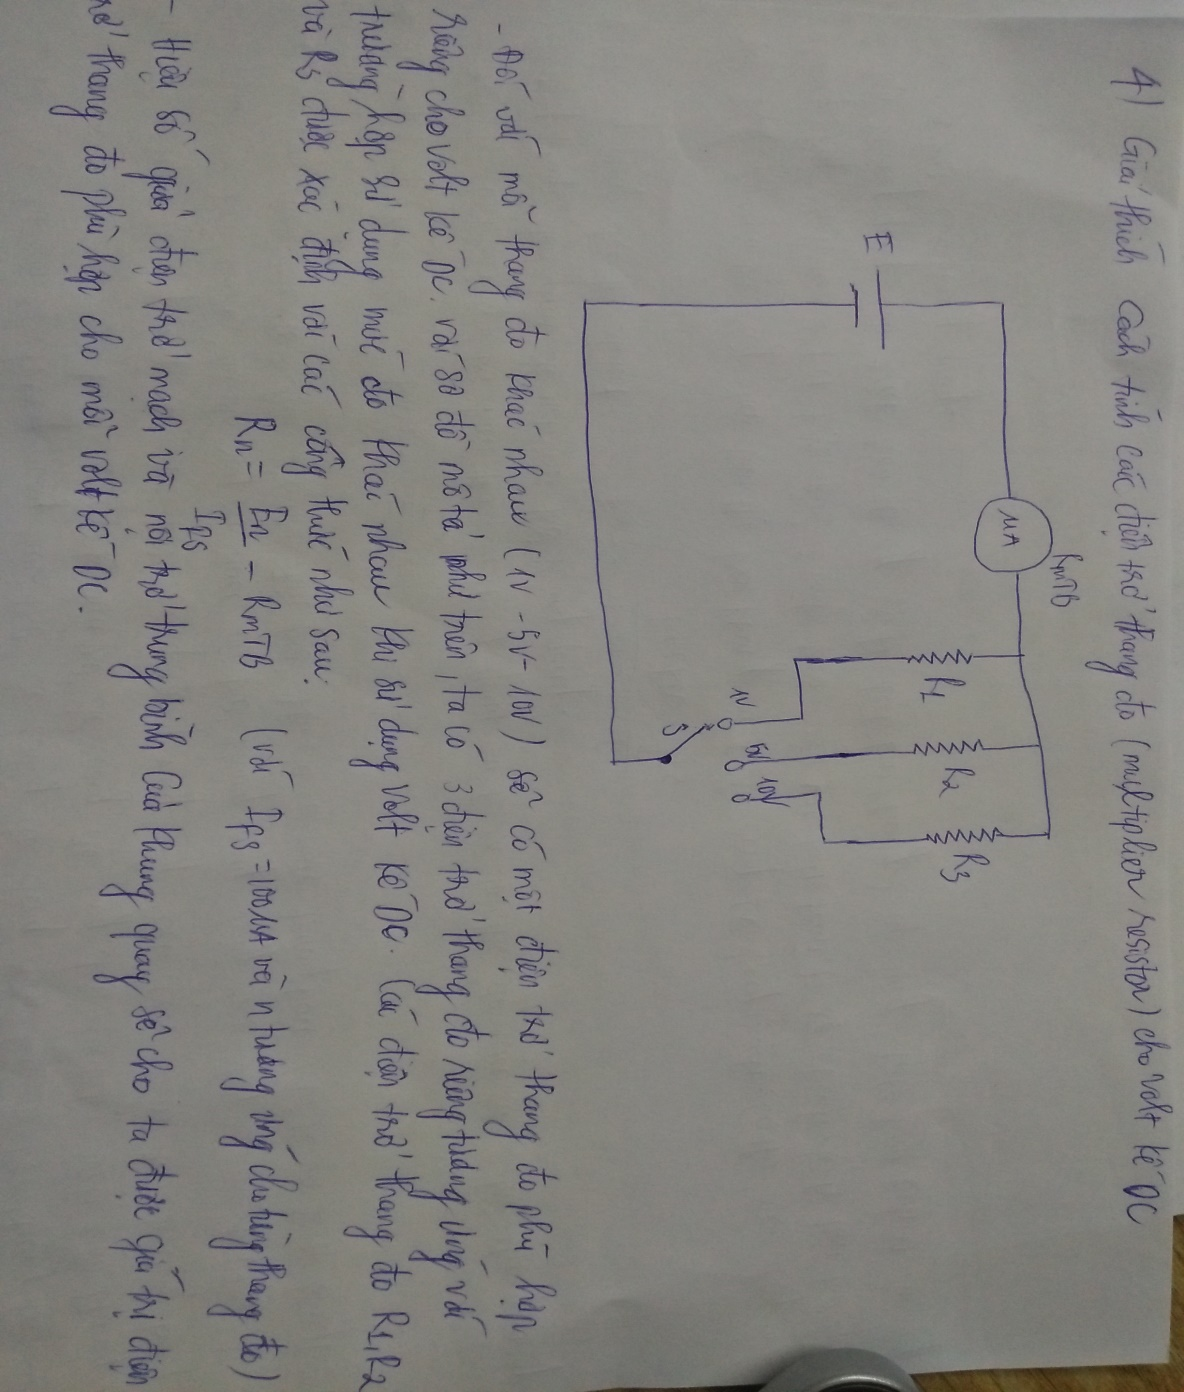 4) Giải thích cách tính các điện trở thang đo (multiplier resistor) cho volt kế DC
E
MA
RmTB
R1
R2
R3
1V
5V
10V
S
- Đối với mỗi thang đo khác nhau (1V - 5V - 10V) sẽ có một điện trở thang đo phù hợp
riêng cho volt kế DC. với sơ đồ mô tả như trên, ta có 3 điện trở thang đo riêng tương ứng với
trường hợp sử dụng mức đo khác nhau khi sử dụng volt kế DC. Các điện trở thang đo R1, R2
và R3 được xác định với các công thức như sau:
Rn = En / Ifs - RmTB (với Ifs = 100MA và n tương ứng cho từng thang đo)
- Hiệu số giữa điện trở mạch và nội trở trung bình của khung quay sẽ cho ta được giá trị điện
trở thang đo phù hợp cho mỗi volt kế DC.